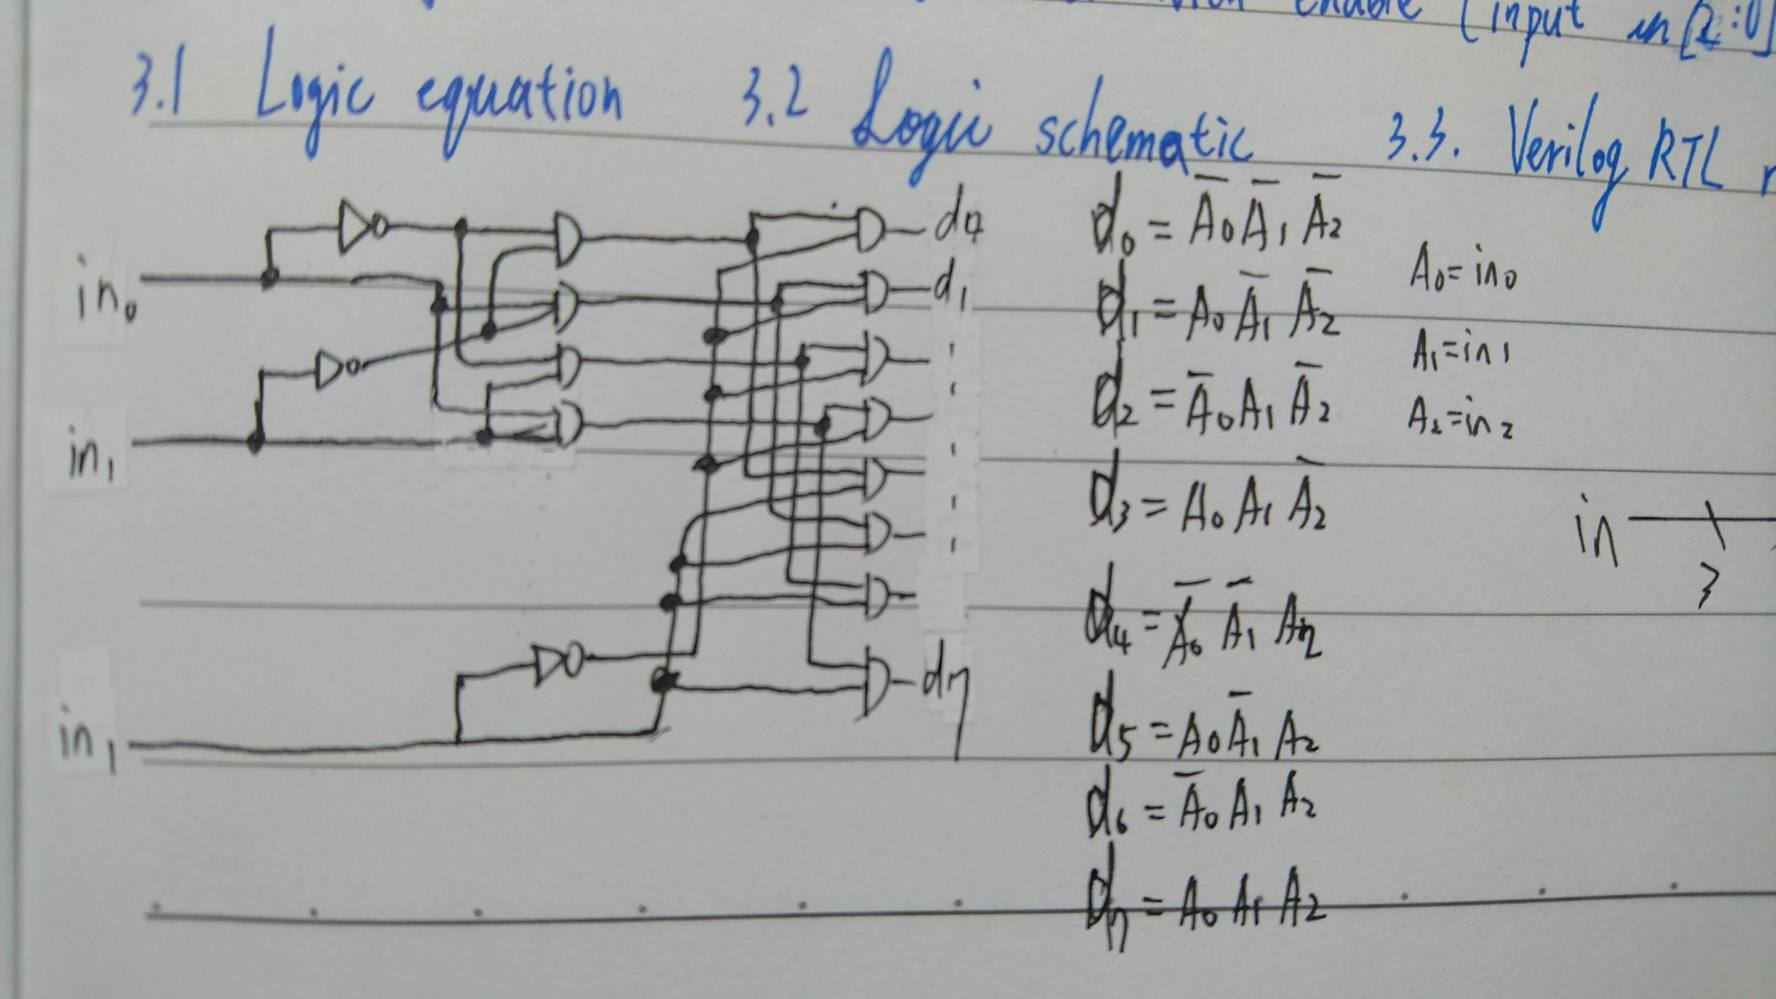 enable (input in[2:0]
3.1 Logic equation 3.2 Logic schematic 3.3. Verilog RTL
in₀
in₁
in₁
d₁
d₇
d₀ = A̅₀ A̅₁ A̅₂
d₁ = A₀ A̅₁ A̅₂
d₂ = A̅₀ A₁ A̅₂
d₃ = A₀ A₁ A̅₂
d₄ = A̅₀ A̅₁ A₂
d₅ = A₀ A̅₁ A₂
d₆ = A̅₀ A₁ A₂
d₇ = A₀ A₁ A₂
A₀ = in₀
A₁ = in₁
A₂ = in₂
in
3